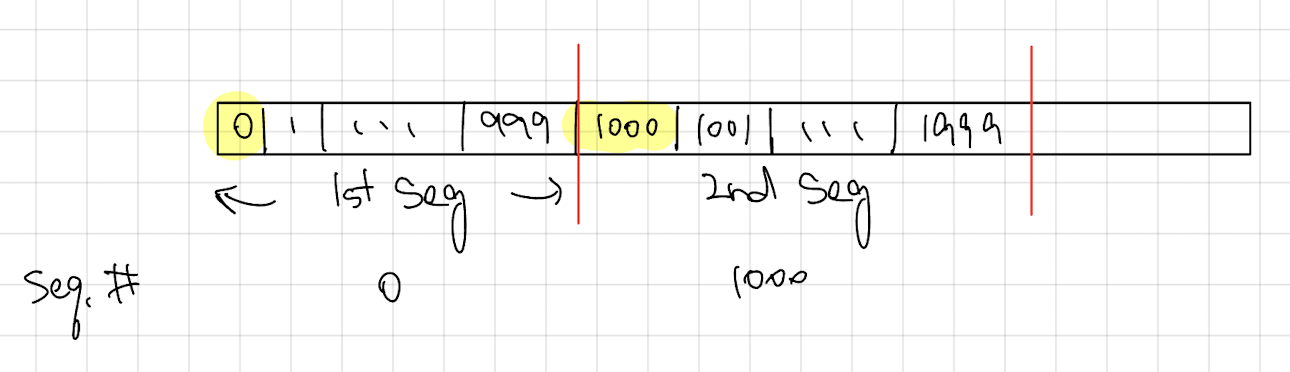 0 1 ... 999 1000 1001 ... 1999
← 1st Seg → 2nd Seg
Seq. # 0 1000